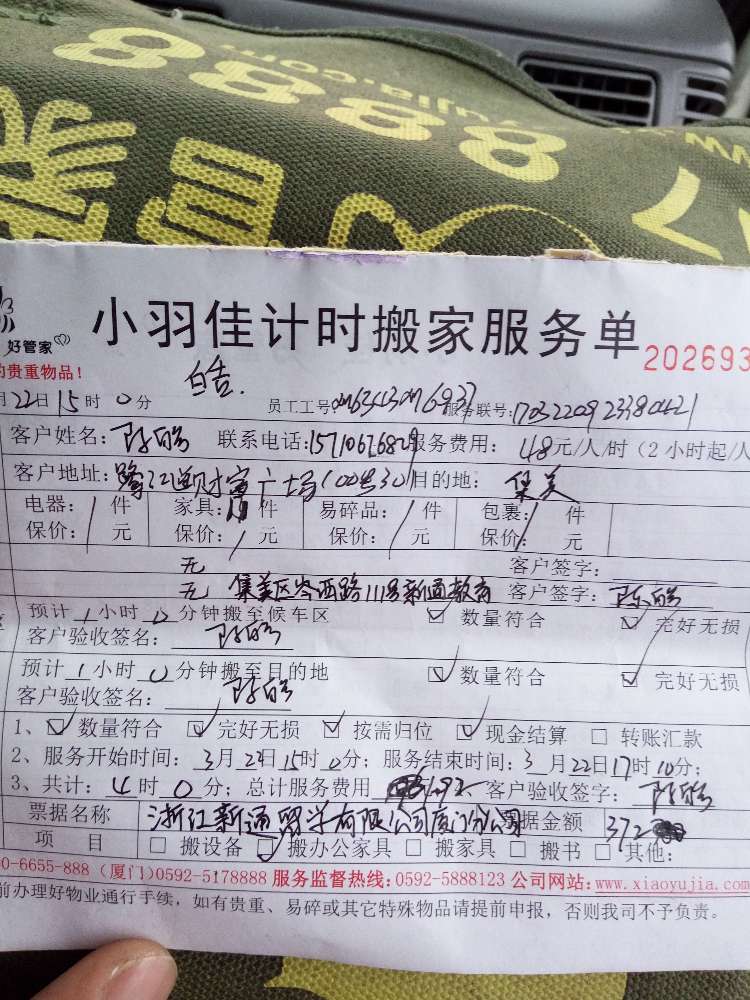 www.
yujia.com
8888
17
家
官
小羽佳计时搬家服务单
好管家
202693
的贵重物品！
皓
月22日15时0分 员工工号: 服务联号:
客户姓名:陈皓 联系电话:15710676829服务费用:48元/人/时(2小时起/人
客户地址:鹭江道财富广场 目的地:集美
电器:/件 家具:/件 易碎品:/件 包裹:/件
保价:/元 保价:/元 保价:/元 保价:/元
无 客户签字:
无 集美区岑西路111号新通教育 客户签字:陈皓
预计1小时0分钟搬至候车区 ☑数量符合 ☑完好无损
客户验收签名:陈皓
预计1小时0分钟搬至目的地 ☑数量符合 ☑完好无损
客户验收签名:陈皓
1、☑数量符合 ☑完好无损 ☑按需归位 ☑现金结算 □转账汇款
2、服务开始时间:3月22日15时0分;服务结束时间:3月22日17时10分;
3、共计:4时0分;总计服务费用 192 客户验收签字:陈皓
票据名称 浙江新通留学有限公司厦门分公司 票据金额 372
项 目 □搬设备 ☑搬办公家具 □搬家具 □搬书 □其他:
0-6655-888 (厦门)0592-5178888 服务监督热线:0592-5888123 公司网站:www.xiaoyujia.com
前办理好物业通行手续，如有贵重、易碎或其它特殊物品请提前申报，否则我司不予负责。